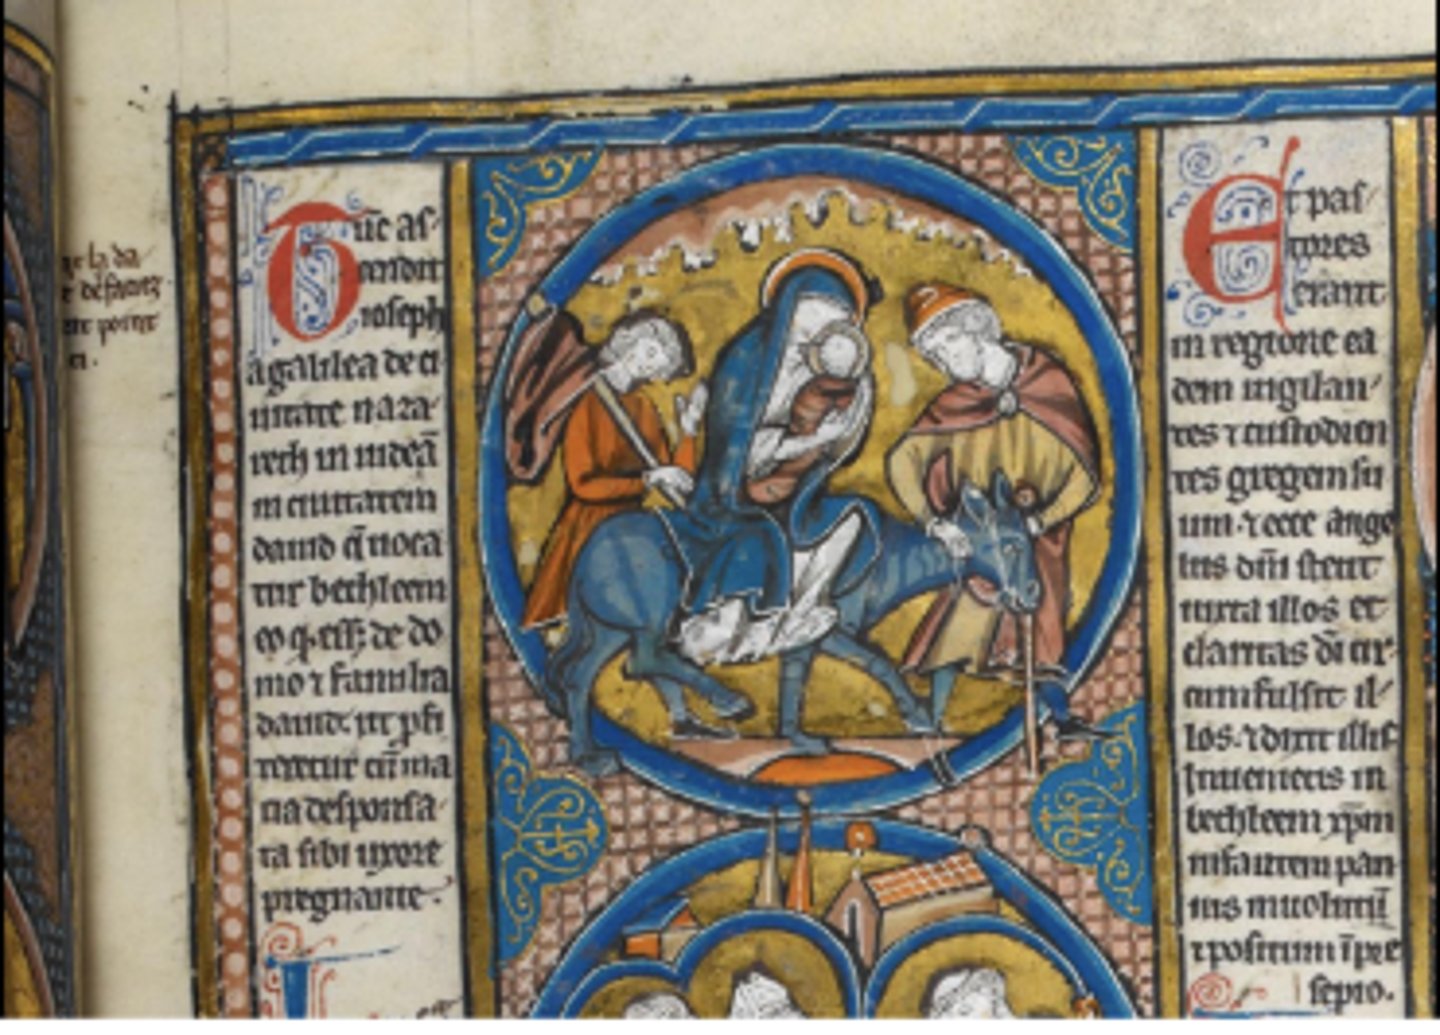 Tūc as-
cendit
ioseph
a galilea de ci
uitate naza-
reth in iudeā
in ciuitatem
dauid q̄ uoca
tur bethleem
eo q. ess; de do
mo ⁊ familia
dauid. ut ꝓfi
teretur cū ma
ria desponsa-
ta sibi uxore
pregnante.
Et pas-
tores
erant
in regione ea
dem uigilan-
tes ⁊ custodien
tes gregem su
um. ⁊ ecce ange
lus dn̄i stetit
iuxta illos et
claritas dī cir-
cumfulsit il-
los. ⁊ dixit illis
Inuenietis in
bethleem xp̄m
infantem pan-
nis inuolutū
⁊ positum ī pre
sepio.